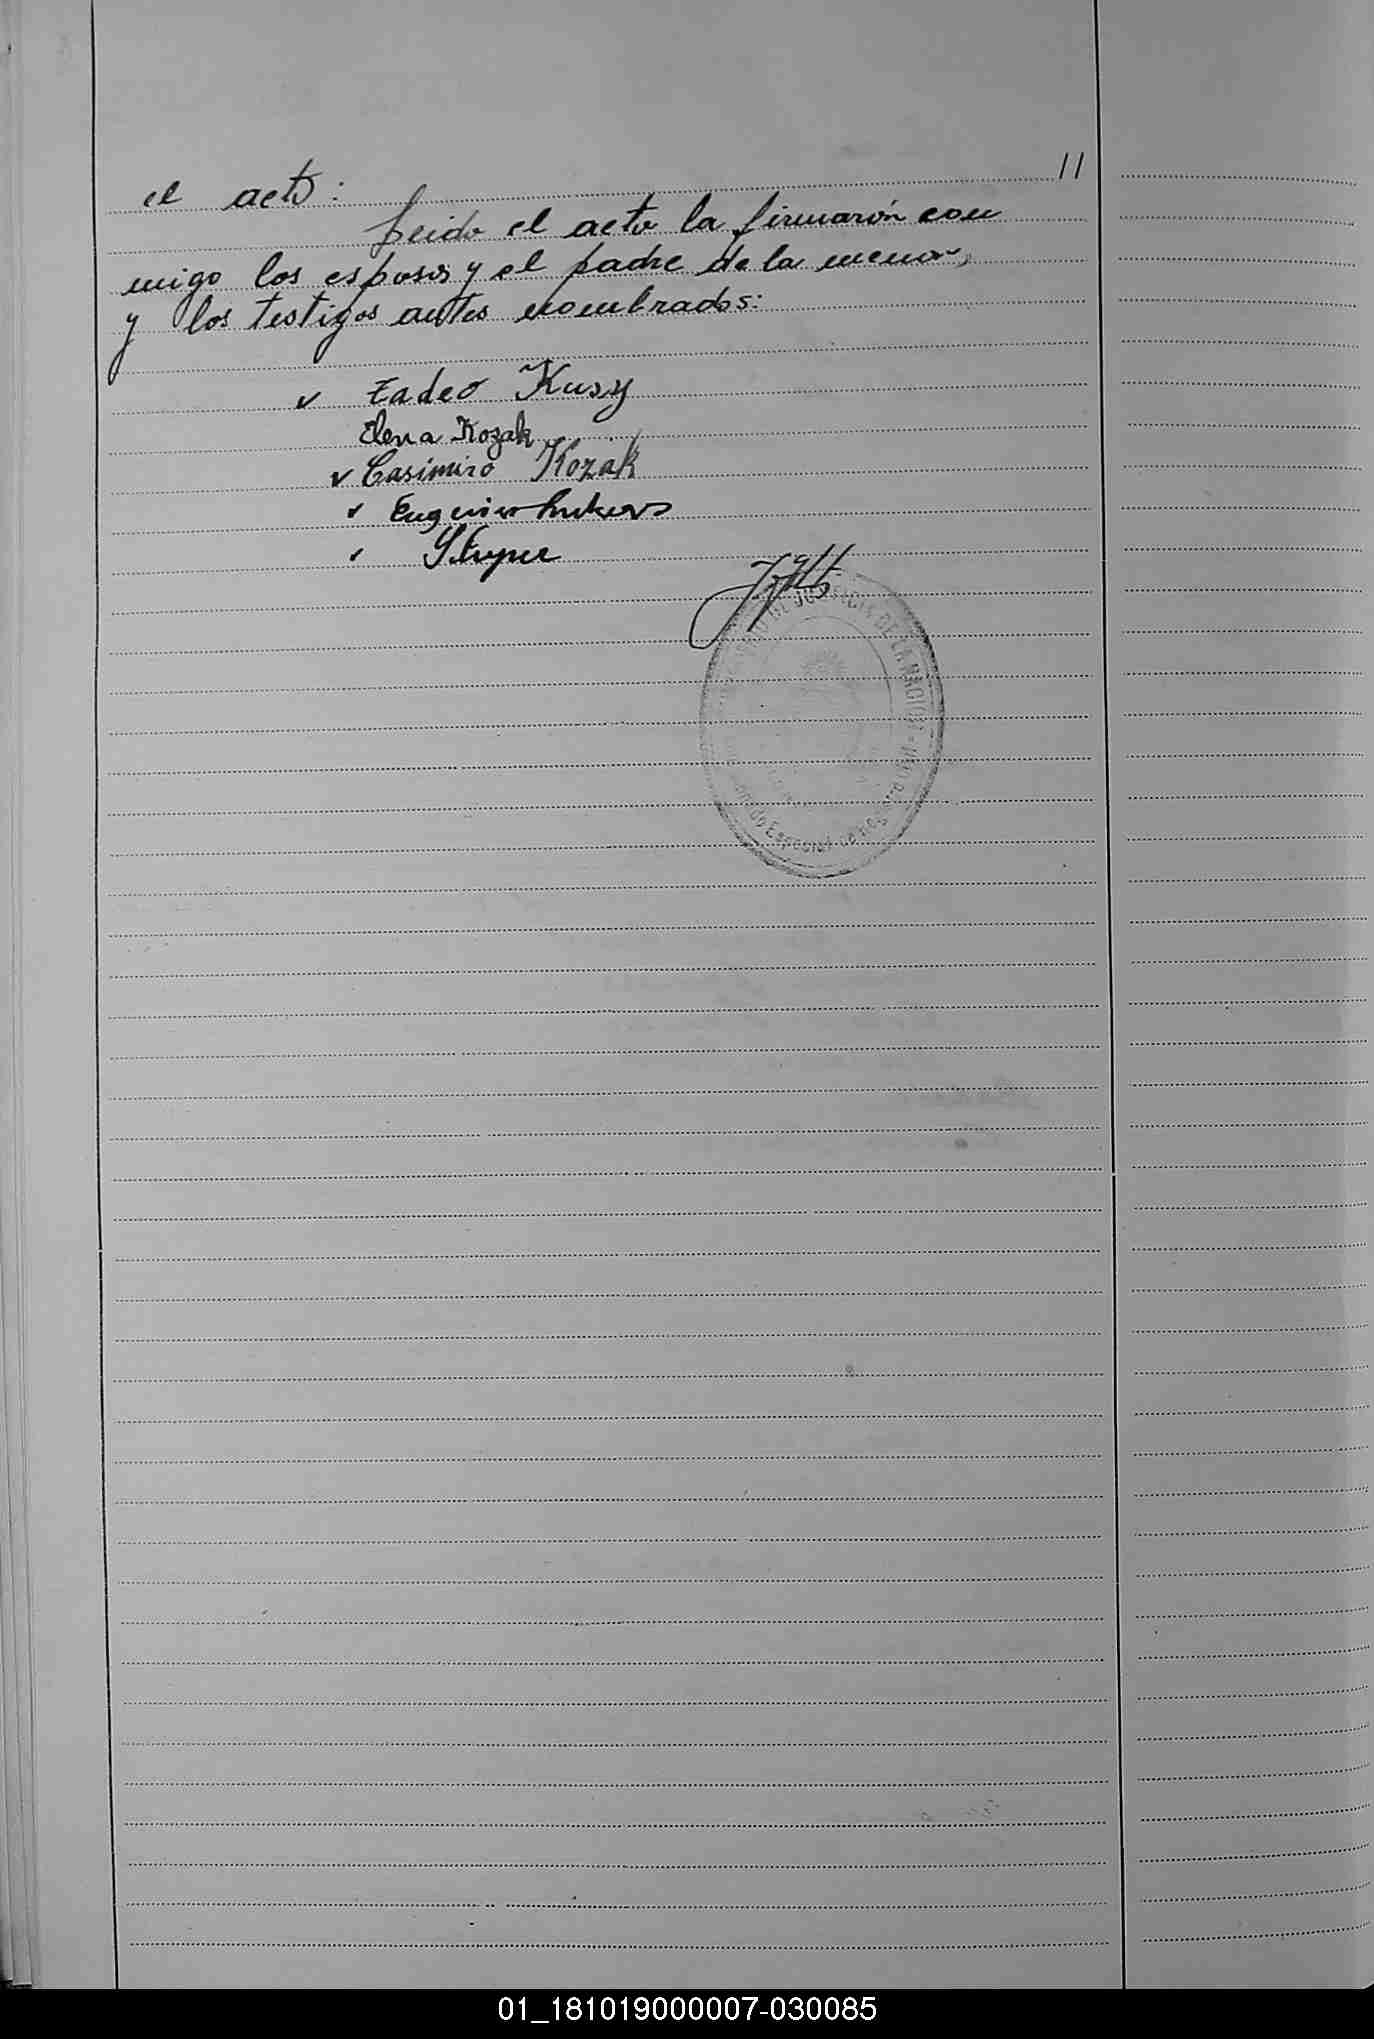 11
el acto:
Leido el acto la firmarón con
migo los esposos y el padre de la menor,
y los testigos antes nombrados:
Tadeo Kusy
Elena Kozak
Casimiro Kozak
Eugenio
DE JUSTICIA DE LA NACION
Especial de
01_181019000007-030085